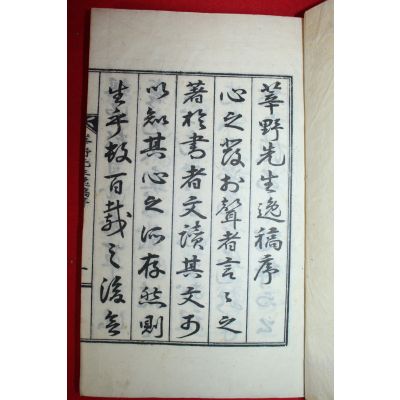 莘野先生逸稿序
心之發於聲者言〻之
著於書者文讀其文可
以知其心之所存然則
生乎數百載之後